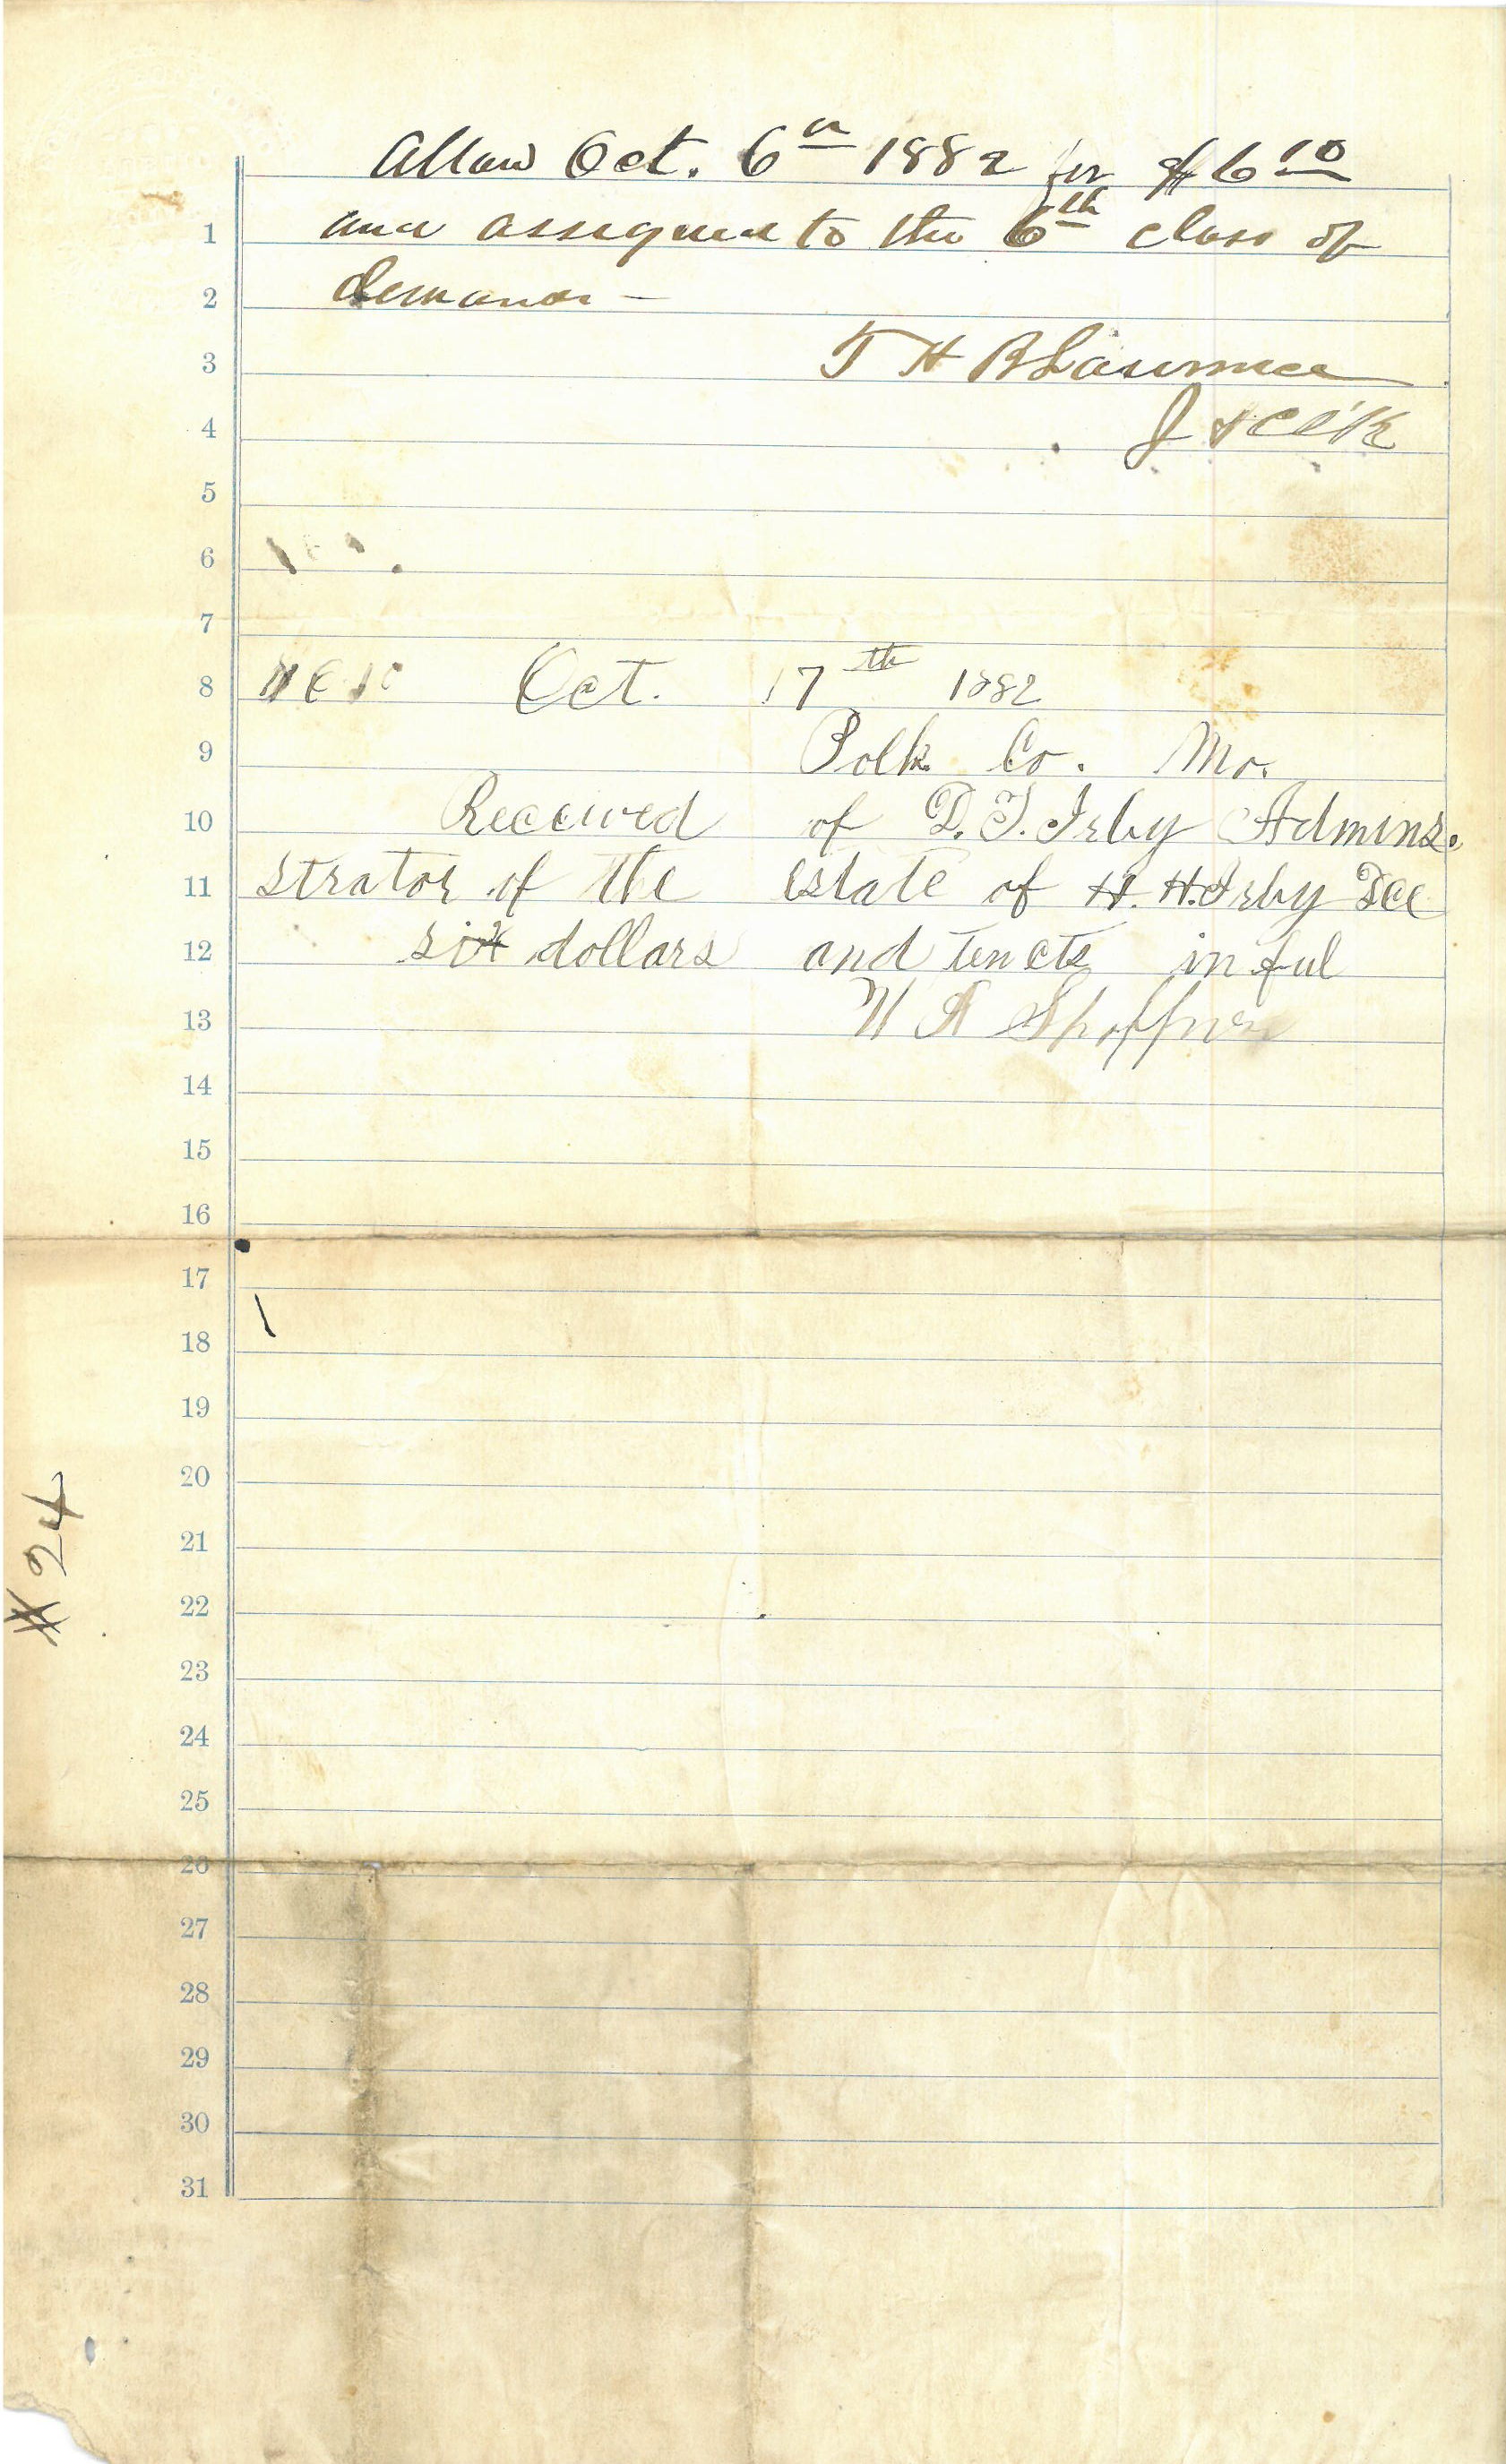 Allow Oct. 6th 1882 for $6 10
and assigned to the 6th class of
1
demands —
2
T H B Lawrence
3
J & Cl'k
4
5
6
7
8 $6 10 Oct. 17th 1882
9 Polk Co. Mo.
10 Received of D. T. Irby Admins.
11 strator of the estate of H. H. Irby Dec
12 six dollars and ten cts in ful
13 W A Shoffner
14
15
16
17
18
19
20
21
22
23
24
25
26
27
28
29
30
31
# 24